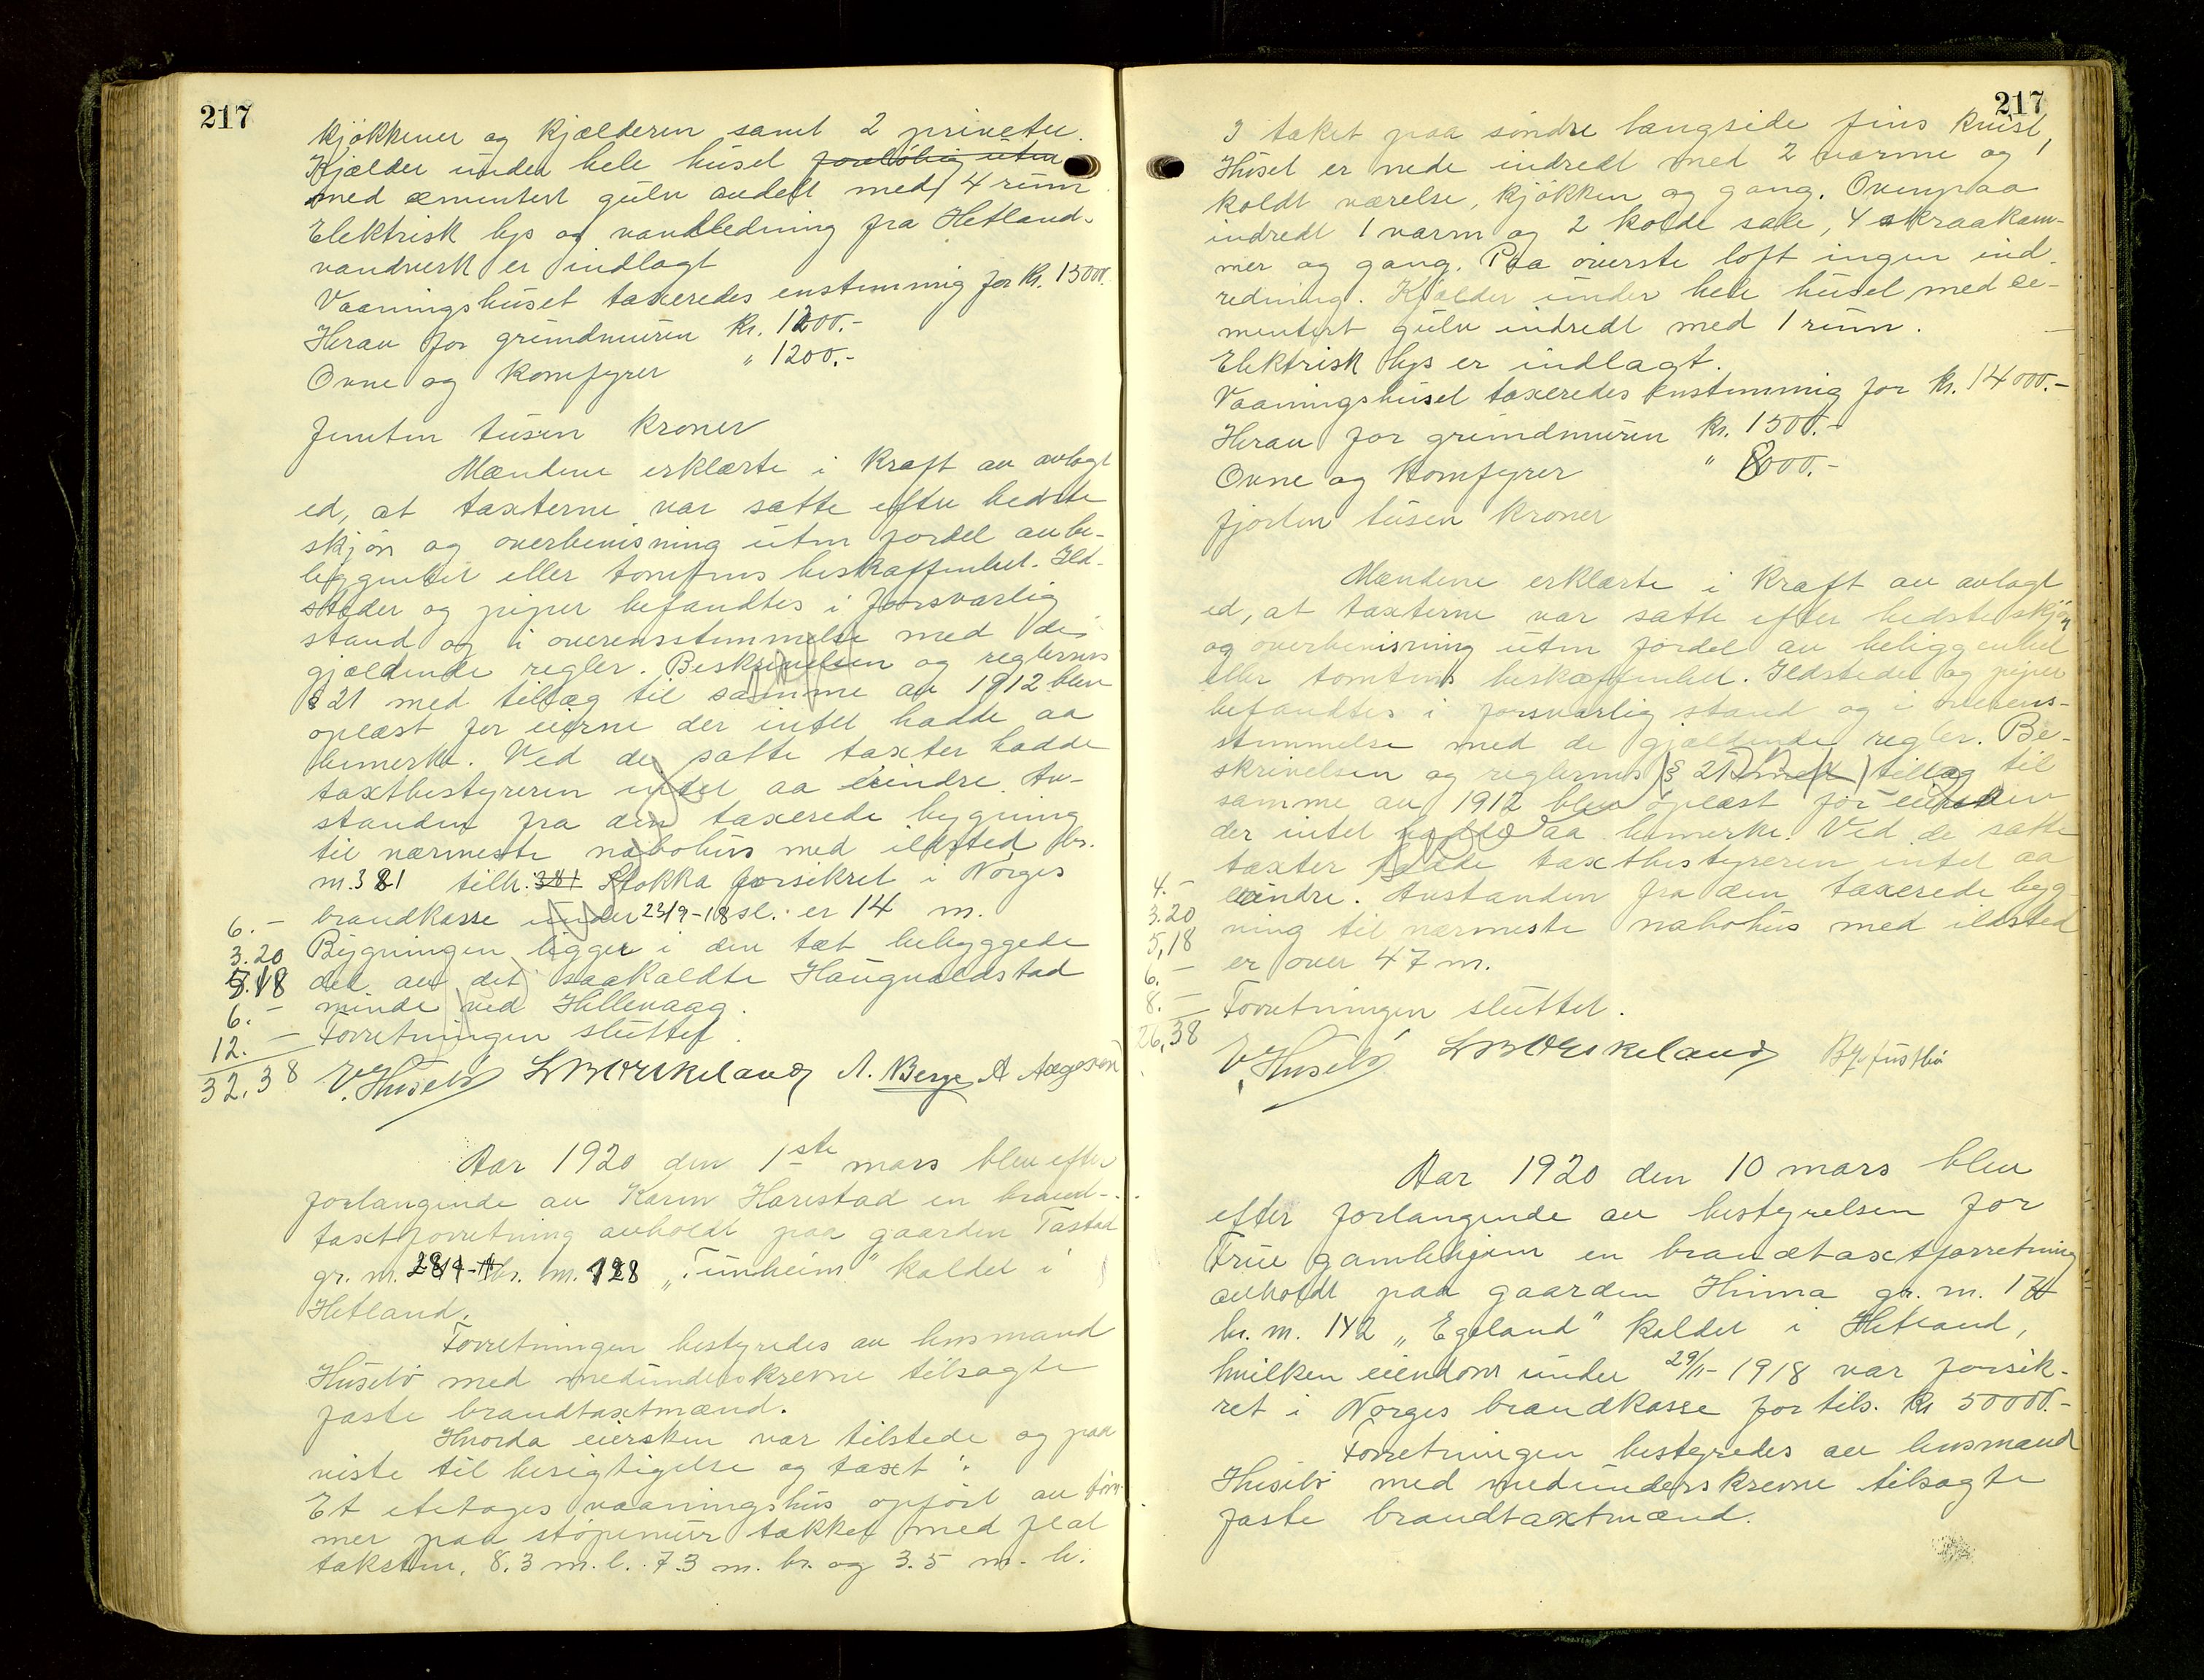 217
kjøkkener og kjælderen samt 2 priveter.
Kjælder under hele huset foreløbig uten
med cementert gulv andelt med 4 rum
Elektrisk lys og vandledning fra Hetland-
vandverk er indlagt
Vaaningshuset taxeredes enstemmig for kr. 15000.
Herav for grundmuren kr. 1200.-
Ovne og komfyrer " 1200.-
femten tusen kroner
Mændene erklærte i kraft av avlagt
ed, at taxterne var satte efter bedste
skjøn og overbevisning uten fordel av be-
liggenhet eller tomtens beskaffenhet. Ild-
steder og piper befandtes i forsvarlig
stand og i overensstemmelse med de
gjældende regler. Beskrivelsen og reglernes
§ 21 med tillæg til samme av 1912 blev
oplæst for eierne der intet hadde aa
bemerke. Ved de satte taxter hadde
taxtbestyreren intet aa erindre. Av-
standen fra den taxerede bygning
til nærmeste nabohus med ildsted br.
nr. 381 tilh. 381 Stokka forsikret i Norges
6. - brandkasse under 23/9-18 sl. er 14 m.
3.20 Bygningen ligger i den tæt bebyggede
5.18 del av det saakaldte Haugvaldstad
6. - minde ved Hillevaag.
12. - Forretningen sluttet.
32,38 E. Husebø L M Orskeland A. Berge A Aageson
Aar 1920 den 1ste mars blev efter
forlangende av Karen Harestad en brand-
taxtforretning avholdt paa gaarden Tastad
gr. nr. 28 br. nr. 128 „Tunheim" kaldet i
Hetland.
Forretningen bestyredes av lensmand
Husebø med medunderskrevne tilsagte
faste brandtaxtmænd.
Hvorda eiersken var tilstede og paa
viste til besigtigelse og taxt:
Et etetages vaaningshus opført av tøm-
mer paa støpemur takket med flat
taksten, 8.3 m. l. 7.3 m. br. og 3.5 m. h.
217
I taket paa søndre langside fins kvist,
Huset er nede indredt med 2 varme og 1
koldt værelse, kjøkken og gang. Ovenpaa
indredt 1 varm og 2 kolde sale, 4 skraakam-
mer og gang. Paa øverste loft ingen ind-
redning. Kjælder under hele huset med ce-
mentert gulv indredt med 1 rum.
Elektrisk lys er indlagt.
Vaaningshuset taxeredes enstemmig for kr. 14000.-
Herav for grundmuren kr. 1500.-
Ovne og komfyrer " 8000.-
fjorten tusen kroner
Mændene erklærte i kraft av avlagt
ed, at taxterne var satte efter bedste skjøn
og overbevisning uten fordel av beliggenhet
eller tomtens beskaffenhet. Ildsteder og piper
befandtes i forsvarlig stand og i overens-
stemmelse med de gjældende regler. Be-
skrivelsen og reglernes § 21 med tillæg til
samme av 1912 blev oplæst for eiersken
der intet hadde aa bemerke. Ved de satte
taxter hadde taxtbestyreren intet aa
4. - erindre. Avstanden fra den taxerede byg-
3.20 ning til nærmeste nabohus med ildsted
5,18 er over 47 m.
6. -
8. - Forretningen sluttet.
26,38 E. Husebø L M Orskeland
Aar 1920 den 10 mars blev
efter forlangende av bestyrelsen for
Frue gamlehjem en brandtaxtforretning
avholdt paa gaarden Hinna gr. nr. 17
br. nr. 142 „Egeland" kaldet i Hetland,
hvilken eiendom under 29/11-1918 var forsik-
ret i Norges brandkasse for tils. kr 50000.-
Forretningen bestyredes av lensmand
Husebø med medunderskrevne tilsagte
faste brandtaxtmænd.